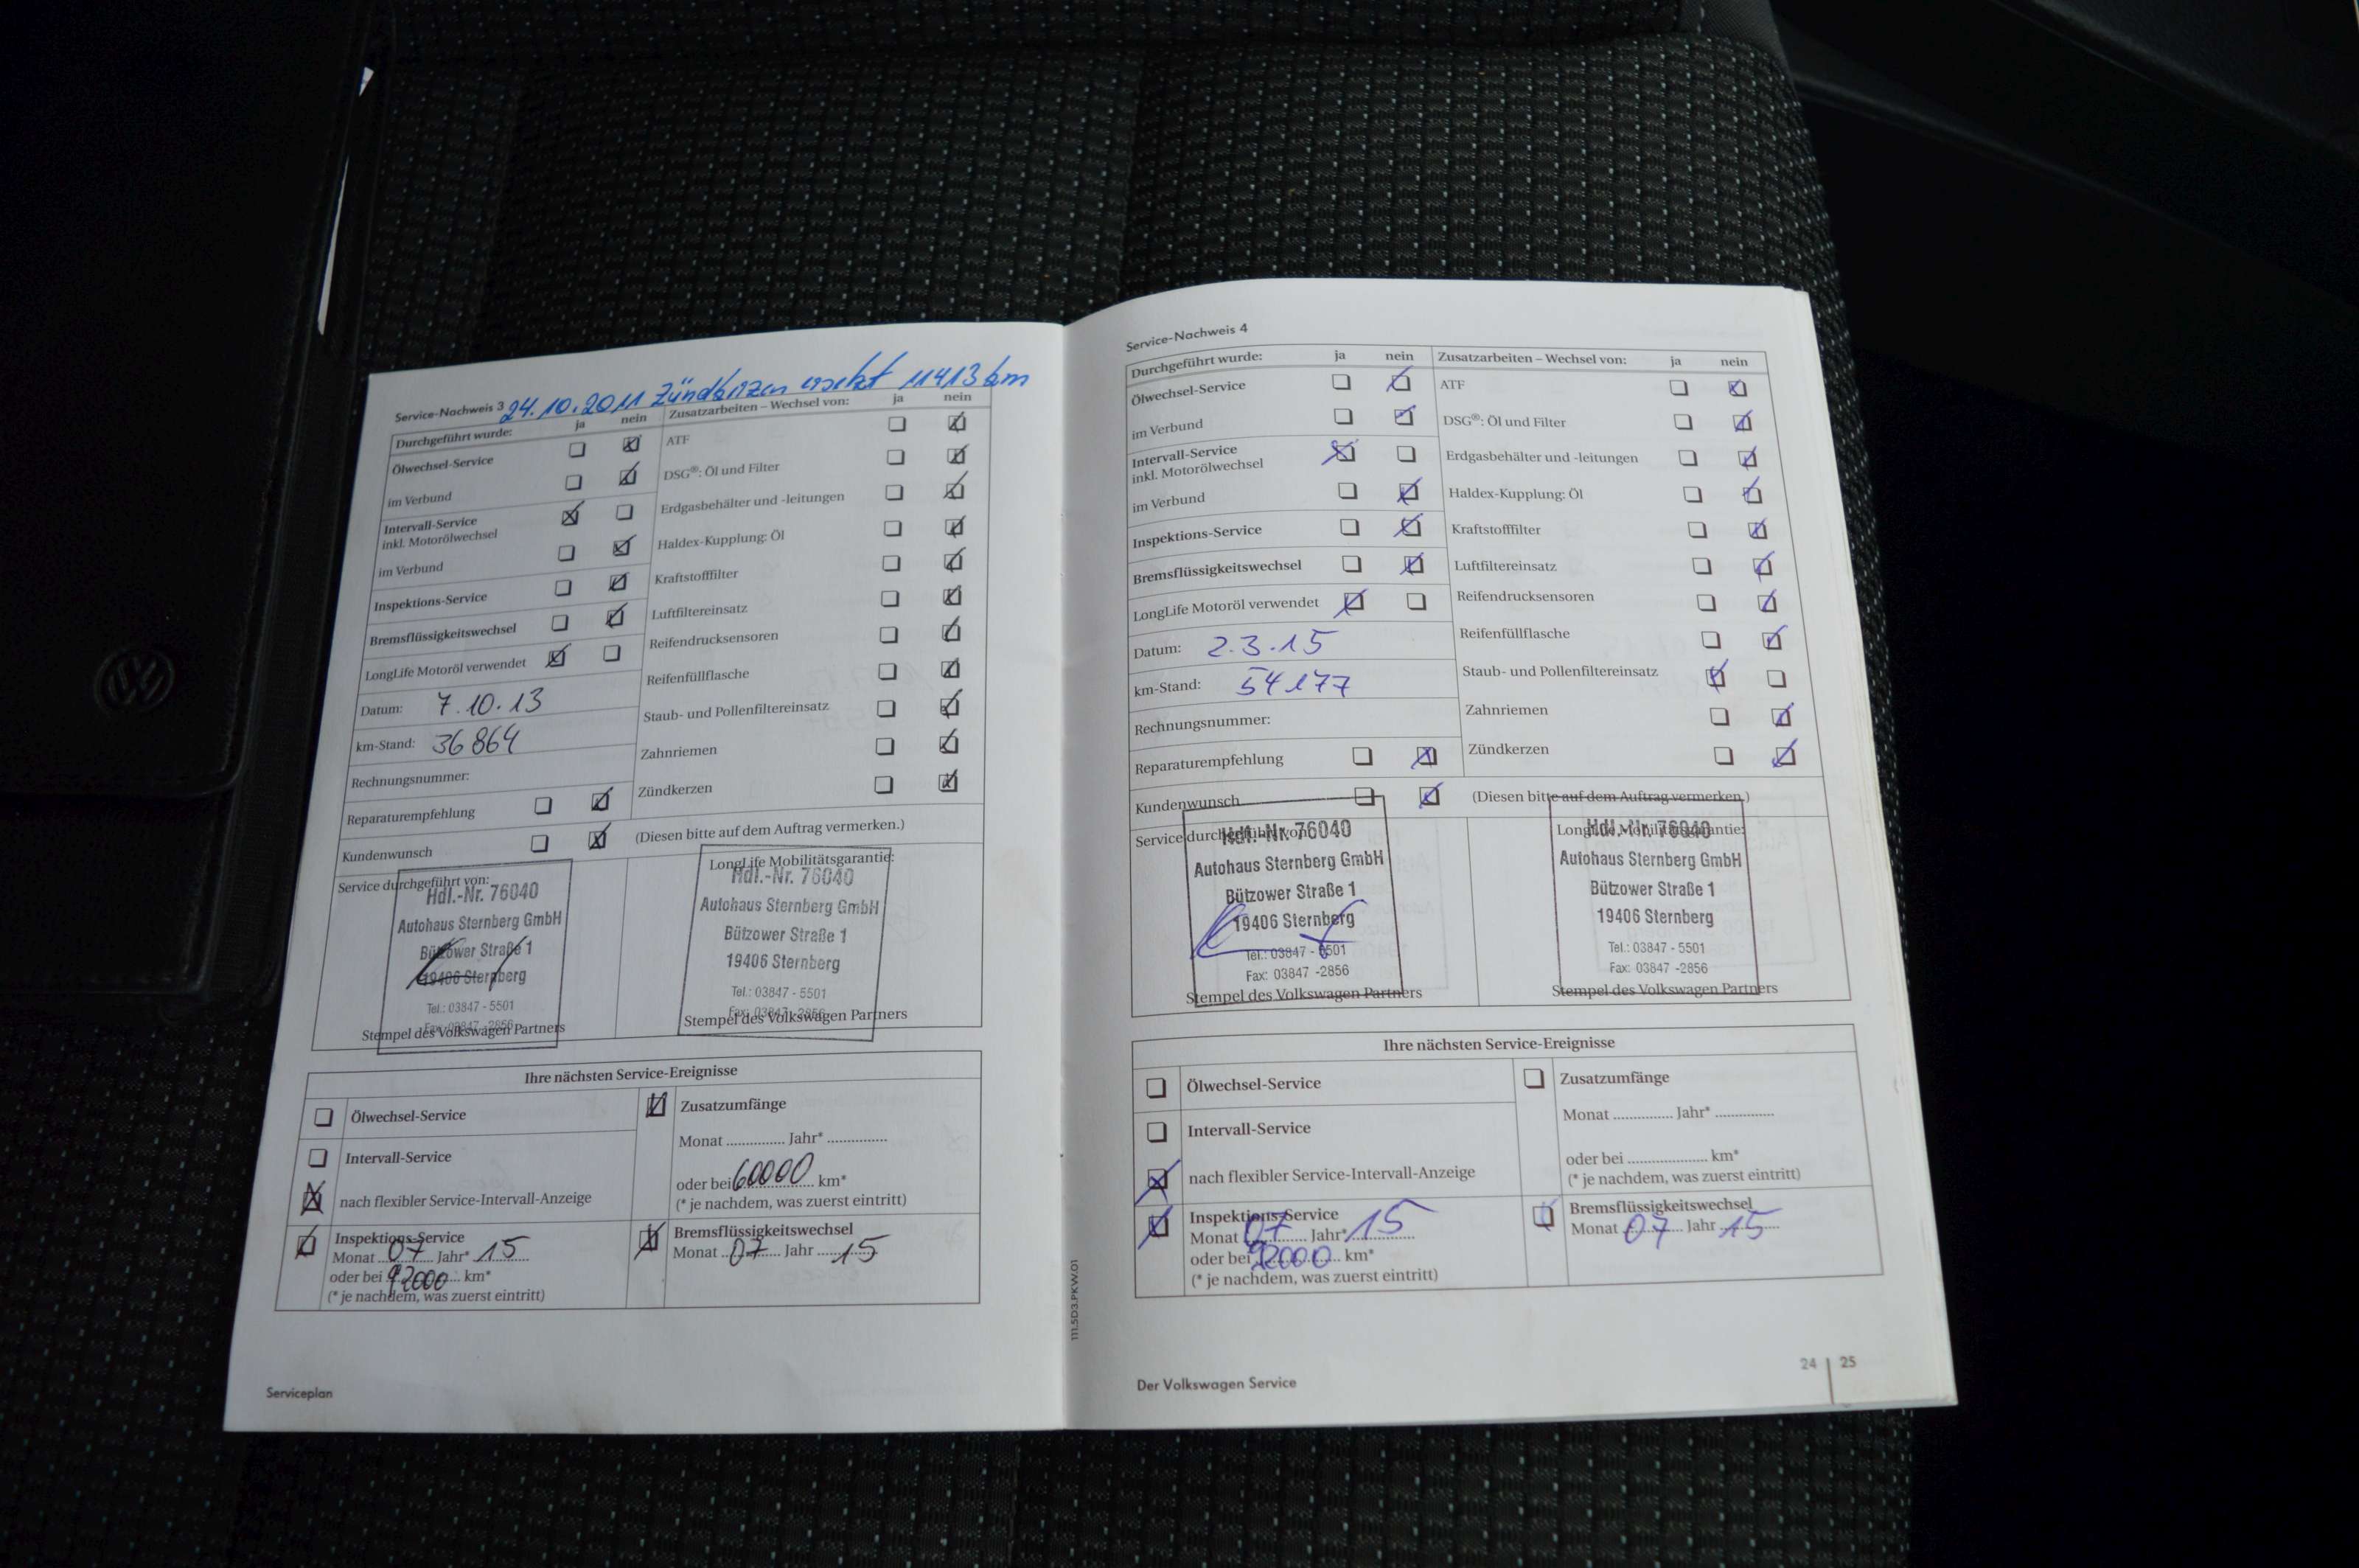 24.10.2011 Zündkerzen ersetzt 11413 km
Service-Nachweis 3
Durchgeführt wurde: ja nein
Ölwechsel-Service
im Verbund
Intervall-Service
inkl. Motorölwechsel
im Verbund
Inspektions-Service
Bremsflüssigkeitswechsel
LongLife Motoröl verwendet
Datum: 7.10.13
km-Stand: 36864
Rechnungsnummer:
Reparaturempfehlung
Kundenwunsch
Zusatzarbeiten – Wechsel von: ja nein
ATF
DSG®: Öl und Filter
Erdgasbehälter und -leitungen
Haldex-Kupplung: Öl
Kraftstofffilter
Luftfiltereinsatz
Reifendrucksensoren
Reifenfüllflasche
Staub- und Pollenfiltereinsatz
Zahnriemen
Zündkerzen
(Diesen bitte auf dem Auftrag vermerken.)
Service durchgeführt von:
Hdl.-Nr. 76040
Autohaus Sternberg GmbH
Bützower Straße 1
19406 Sternberg
Tel.: 03847 - 5501
Fax: 03847 -2856
Stempel des Volkswagen Partners
LongLife Mobilitätsgarantie:
Hdl.-Nr. 76040
Autohaus Sternberg GmbH
Bützower Straße 1
19406 Sternberg
Tel.: 03847 - 5501
Fax: 03847 -2856
Stempel des Volkswagen Partners
Ihre nächsten Service-Ereignisse
Ölwechsel-Service
Intervall-Service
nach flexibler Service-Intervall-Anzeige
Inspektions-Service
Monat 07 Jahr* 15
oder bei 92000 km*
(* je nachdem, was zuerst eintritt)
Zusatzumfänge
Monat ............... Jahr* ...............
oder bei 60000 km*
(* je nachdem, was zuerst eintritt)
Bremsflüssigkeitswechsel
Monat 07 Jahr 15
Serviceplan
Service-Nachweis 4
Durchgeführt wurde: ja nein
Ölwechsel-Service
im Verbund
Intervall-Service
inkl. Motorölwechsel
im Verbund
Inspektions-Service
Bremsflüssigkeitswechsel
LongLife Motoröl verwendet
Datum: 2.3.15
km-Stand: 54177
Rechnungsnummer:
Reparaturempfehlung
Kundenwunsch
Zusatzarbeiten – Wechsel von: ja nein
ATF
DSG®: Öl und Filter
Erdgasbehälter und -leitungen
Haldex-Kupplung: Öl
Kraftstofffilter
Luftfiltereinsatz
Reifendrucksensoren
Reifenfüllflasche
Staub- und Pollenfiltereinsatz
Zahnriemen
Zündkerzen
(Diesen bitte auf dem Auftrag vermerken.)
Service durchgeführt von:
Hdl.-Nr. 76040
Autohaus Sternberg GmbH
Bützower Straße 1
19406 Sternberg
Tel.: 03847 - 5501
Fax: 03847 -2856
Stempel des Volkswagen Partners
LongLife Mobilitätsgarantie:
Hdl.-Nr. 76040
Autohaus Sternberg GmbH
Bützower Straße 1
19406 Sternberg
Tel.: 03847 - 5501
Fax: 03847 -2856
Stempel des Volkswagen Partners
Ihre nächsten Service-Ereignisse
Ölwechsel-Service
Intervall-Service
nach flexibler Service-Intervall-Anzeige
Inspektions-Service
Monat 07 Jahr* 15
oder bei 92000 km*
(* je nachdem, was zuerst eintritt)
Zusatzumfänge
Monat ............... Jahr* ...............
oder bei ..................... km*
(* je nachdem, was zuerst eintritt)
Bremsflüssigkeitswechsel
Monat 07 Jahr 15
111.5D3.PKW.01
Der Volkswagen Service
24 | 25